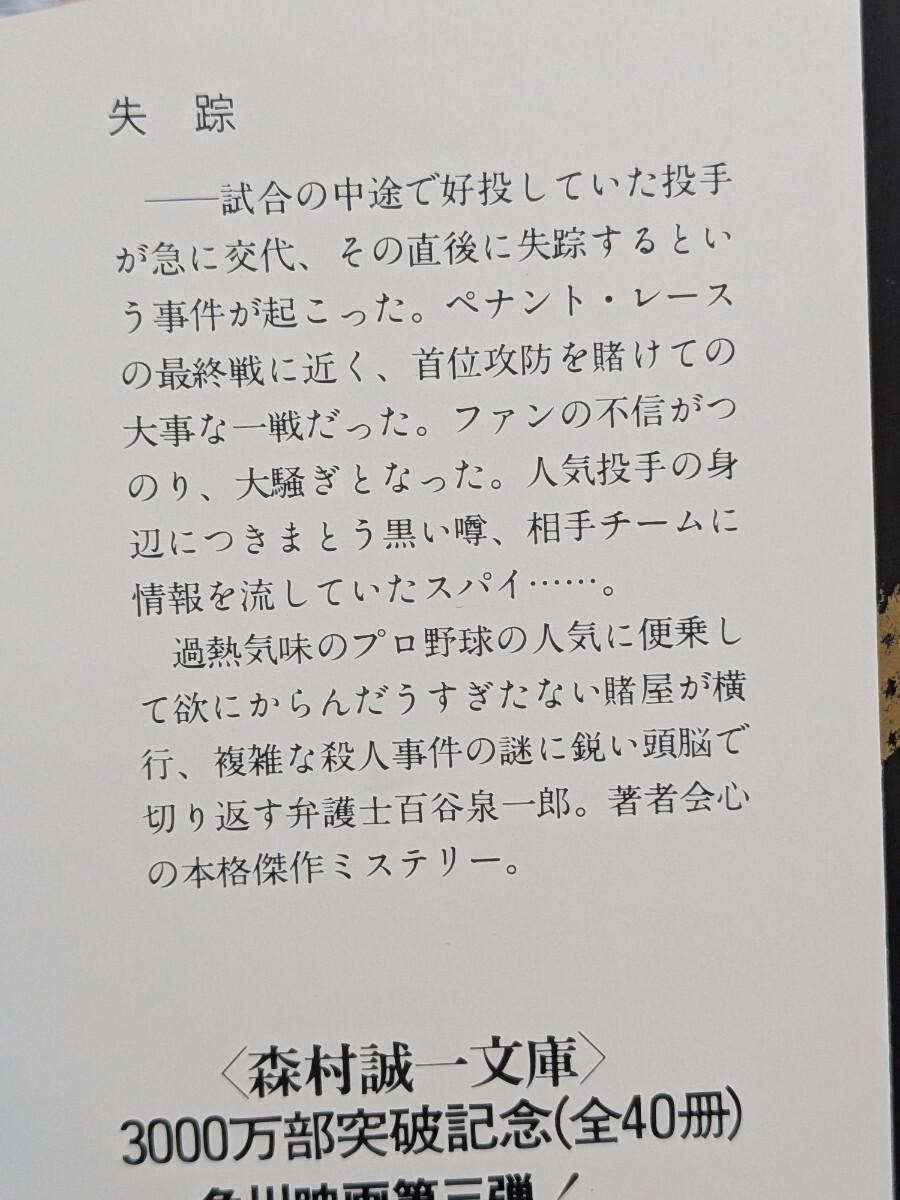 失踪
──試合の中途で好投していた投手
が急に交代、その直後に失踪するとい
う事件が起こった。ペナント・レース
の最終戦に近く、首位攻防を賭けての
大事な一戦だった。ファンの不信がつ
のり、大騒ぎとなった。人気投手の身
辺につきまとう黒い噂、相手チームに
情報を流していたスパイ……。
過熱気味のプロ野球の人気に便乗し
て欲にからんだうすぎたない賭屋が横
行、複雑な殺人事件の謎に鋭い頭脳で
切り返す弁護士百谷泉一郎。著者会心
の本格傑作ミステリー。
〈森村誠一文庫〉
3000万部突破記念(全40冊)
角川映画第三弾！